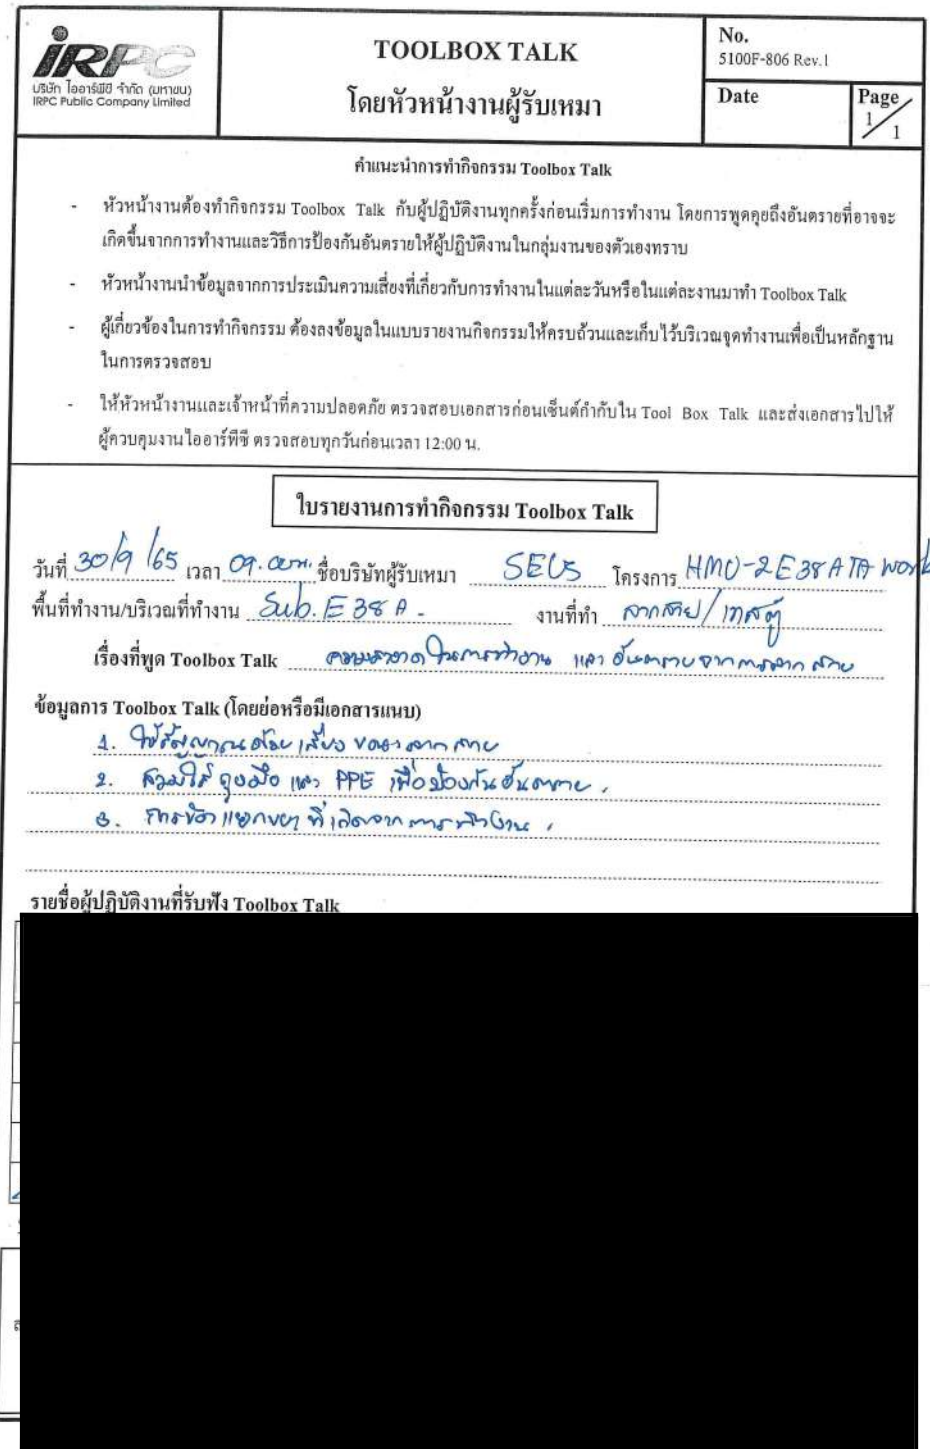 iRPC
บริษัท ไออาร์พีซี จำกัด (มหาชน)
IRPC Public Company Limited
TOOLBOX TALK
โดยหัวหน้างานผู้รับเหมา
No.
5100F-806 Rev.1
Date
Page
1/1
คำแนะนำการทำกิจกรรม Toolbox Talk
- หัวหน้างานต้องทำกิจกรรม Toolbox Talk กับผู้ปฏิบัติงานทุกครั้งก่อนเริ่มการทำงาน โดยการพูดคุยถึงอันตรายที่อาจจะ
เกิดขึ้นจากการทำงานและวิธีการป้องกันอันตรายให้ผู้ปฏิบัติงานในกลุ่มงานของตัวเองทราบ
- หัวหน้างานนำข้อมูลจากการประเมินความเสี่ยงที่เกี่ยวกับการทำงานในแต่ละวันหรือในแต่ละงานมาทำ Toolbox Talk
- ผู้เกี่ยวข้องในการทำกิจกรรม ต้องลงข้อมูลในแบบรายงานกิจกรรมให้ครบถ้วนและเก็บไว้บริเวณจุดทำงานเพื่อเป็นหลักฐาน
ในการตรวจสอบ
- ให้หัวหน้างานและเจ้าหน้าที่ความปลอดภัย ตรวจสอบเอกสารก่อนเซ็นต์กำกับใน Tool Box Talk และส่งเอกสารไปให้
ผู้ควบคุมงานไออาร์พีซี ตรวจสอบทุกวันก่อนเวลา 12:00 น.
ใบรายงานการทำกิจกรรม Toolbox Talk
วันที่ 30/9/65 เวลา 09.00น. ชื่อบริษัทผู้รับเหมา SEUS โครงการ HMU-2E38A TA Work
พื้นที่ทำงาน/บริเวณที่ทำงาน Sub. E38A. งานที่ทำ ลากสาย/เทสตู้
เรื่องที่พูด Toolbox Talk ความสะอาดในการทำงาน และ อันตรายจากการลากสาย
ข้อมูลการ Toolbox Talk (โดยย่อหรือมีเอกสารแนบ)
1. ใช้สัญญาณด้วยเสียง ขณะลากสาย
2. สวมใส่ถุงมือ และ PPE เพื่อป้องกันอันตราย.
3. การแยกขยะ ที่เกิดจากการทำงาน.
รายชื่อผู้ปฏิบัติงานที่รับฟัง Toolbox Talk